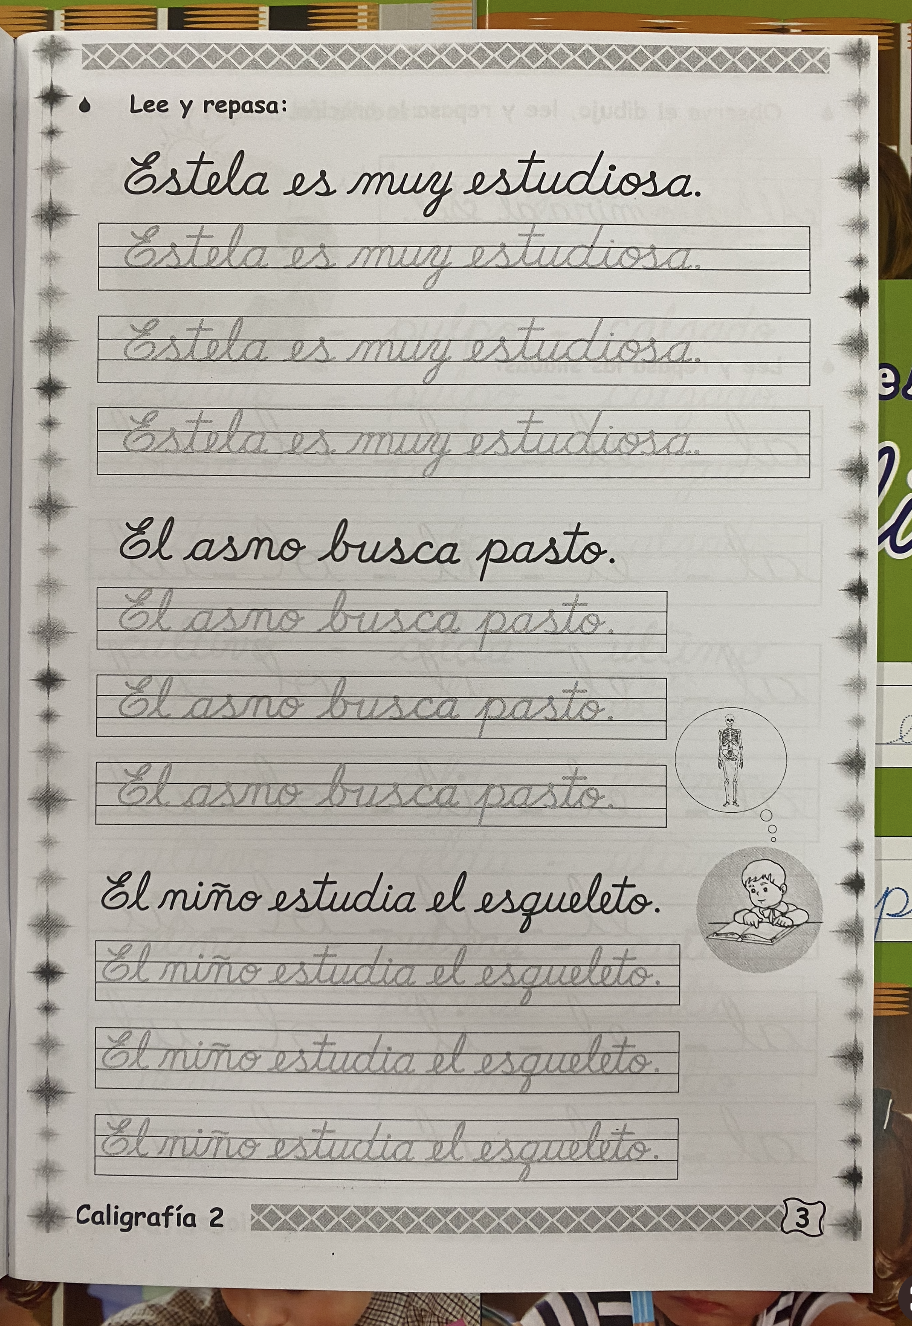 Lee y repasa:
Estela es muy estudiosa.
Estela es muy estudiosa.
Estela es muy estudiosa.
Estela es muy estudiosa.
El asno busca pasto.
El asno busca pasto.
El asno busca pasto.
El asno busca pasto.
El niño estudia el esqueleto.
El niño estudia el esqueleto.
El niño estudia el esqueleto.
El niño estudia el esqueleto.
Caligrafía 2
3